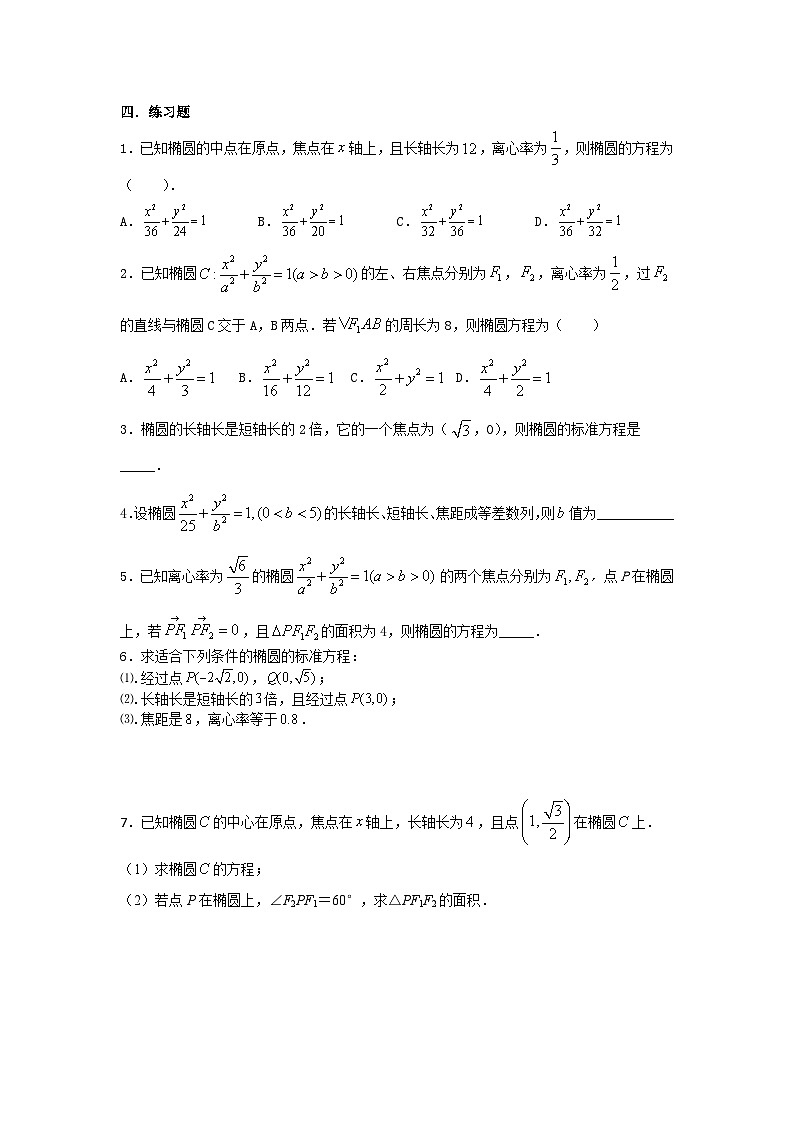 四．练习题
1.已知椭圆的中点在原点,焦点在 x 轴上,且长轴长为 12 ,离心率为 1/3 ,则椭圆的方程为
（  ）.
A. x²/36 + y²/24 = 1 B. x²/36 + y²/20 = 1 C. x²/32 + y²/36 = 1 D. x²/36 + y²/32 = 1
2.已知椭圆 C : x²/a² + y²/b² = 1(a > b > 0) 的左、右焦点分别为 F₁ , F₂ ,离心率为 1/2 ,过 F₂
的直线与椭圆 C 交于 A,B 两点.若 ∨F₁AB 的周长为 8,则椭圆方程为（  ）
A. x²/4 + y²/3 = 1 B. x²/16 + y²/12 = 1 C. x²/2 + y² = 1 D. x²/4 + y²/2 = 1
3.椭圆的长轴长是短轴长的 2 倍,它的一个焦点为（ √3 ,0）,则椭圆的标准方程是
_____.
4.设椭圆 x²/25 + y²/b² = 1, (0 < b < 5) 的长轴长、短轴长、焦距成等差数列,则 b 值为___________
5.已知离心率为 √6/3 的椭圆 x²/a² + y²/b² = 1(a > b > 0) 的两个焦点分别为 F₁, F₂, 点 P 在椭圆
上,若 →PF₁ →PF₂ = 0 ,且 ΔPF₁F₂ 的面积为 4,则椭圆的方程为_____.
6.求适合下列条件的椭圆的标准方程:
⑴.经过点 P(−2√2,0) , Q(0,√5) ;
⑵.长轴长是短轴长的 3 倍,且经过点 P(3,0) ;
⑶.焦距是 8 ,离心率等于 0.8 .
7.已知椭圆 C 的中心在原点,焦点在 x 轴上,长轴长为 4 ,且点 (1, √3/2) 在椭圆 C 上.
（1）求椭圆 C 的方程;
（2）若点 P 在椭圆上,∠F₂PF₁＝60°,求△PF₁F₂ 的面积.